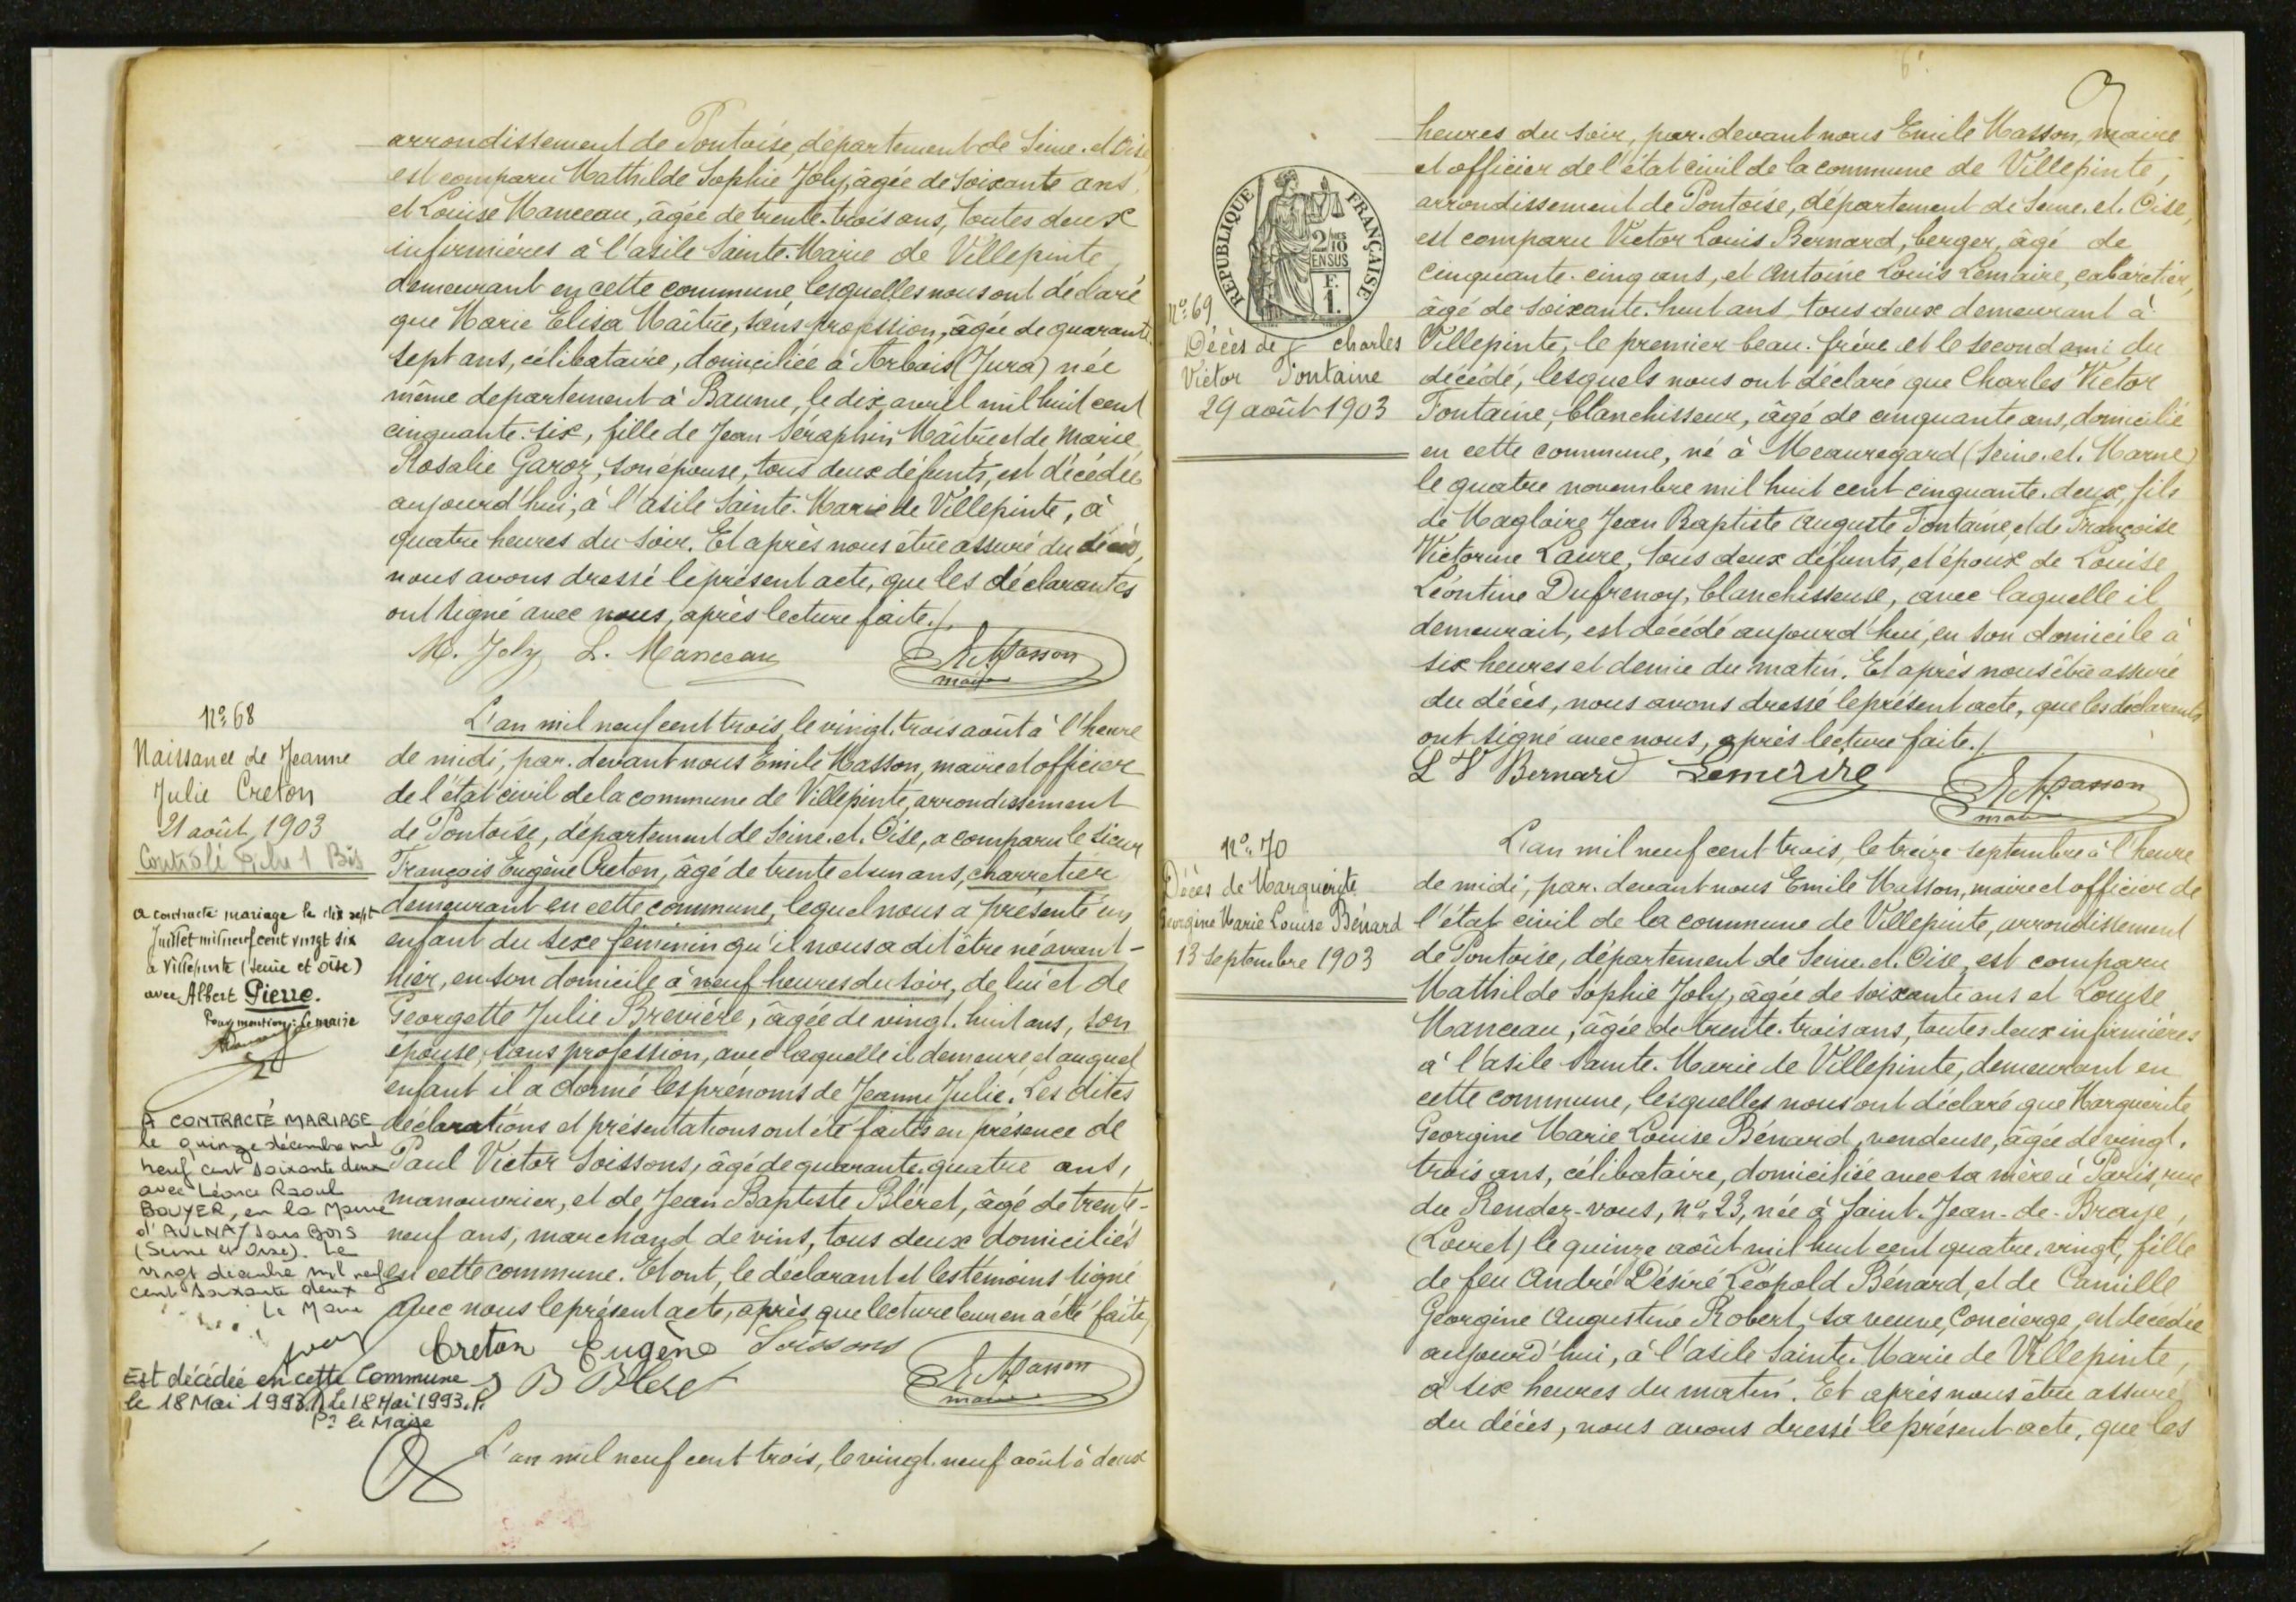 arrondissement de Pontoise, département de Seine-et-Oise
est comparu Mathilde Sophie Joly, âgée de soixante ans,
et Louise Manceau, âgée de trente-trois ans, toutes deux
infirmières à l'asile Sainte-Marie de Villepinte,
demeurant en cette commune, lesquelles nous ont déclaré
que Marie Elisa Maître, sans profession, âgée de quarante-
sept ans, célibataire, domiciliée à Arbois (Jura) née
même département à Baume, le dix avril mil huit cent
cinquante-six, fille de Jean Séraphin Maître et de Marie
Rosalie Garoz, son épouse, tous deux défunts, est décédée
aujourd'hui, à l'asile Sainte-Marie de Villepinte, à
quatre heures du soir. Et après nous être assuré du décès,
nous avons dressé le présent acte, que les déclarantes
ont signé avec nous, après lecture faite./.
M. Joly L. Manceau E. Masson
maire
N° 68
Naissance de Jeanne
Julie Creton
21 août 1903
Contrôlé 1 Bis
a contracté mariage le dix sept
Juillet mil neuf cent vingt six
à Villepinte (Seine et Oise)
avec Albert Pierre.
Pour mention: Le maire
A CONTRACTÉ MARIAGE
le quinze décembre mil
neuf cent soixante deux
avec Léonce Raoul
BOUYER, en la Mairie
d'AULNAY sous BOIS
(Seine et Oise). Le
vingt décembre mil neuf
cent soixante deux
Le Maire
Est décédée en cette Commune
le 18 Mai 1993. Le 18 Mai 1993.
Pr le Maire
L'an mil neuf cent trois, le vingt-trois août à l'heure
de midi, par-devant nous Emile Masson, maire et officier
de l'état civil de la commune de Villepinte, arrondissement
de Pontoise, département de Seine-et-Oise, a comparu le sieur
François Eugène Creton, âgé de trente et un ans, charretier
demeurant en cette commune, lequel nous a présenté un
enfant du sexe féminin qu'il nous a dit être né avant-
hier, en son domicile à neuf heures du soir, de lui et de
Georgette Julie Brevière, âgée de vingt-huit ans, son
épouse, sans profession, avec laquelle il demeure, et auquel
enfant il a donné les prénoms de Jeanne Julie. Les dites
déclarations et présentations ont été faites en présence de
Paul Victor Soissons, âgé de quarante-quatre ans,
manouvrier, et de Jean Baptiste Bléret, âgé de trente-
neuf ans, marchand de vins, tous deux domiciliés
en cette commune. Et ont, le déclarant et les témoins signé
avec nous le présent acte, après que lecture leur en a été faite,
Creton Eugène Soissons
B Bléret E. Masson
maire
L'an mil neuf cent trois, le vingt-neuf août à deux
REPUBLIQUE FRANÇAISE
2/10
EN SUS
F.
1.
N° 69
Décès de Charles
Victor Fontaine
29 août 1903
heures du soir, par-devant nous Emile Masson, maire
et officier de l'état civil de la commune de Villepinte,
arrondissement de Pontoise, département de Seine-et-Oise,
est comparu Victor Louis Bernard, berger, âgé de
cinquante-cinq ans, et Antoine Louis Lemaire, cabaretier,
âgé de soixante-huit ans, tous deux demeurant à
Villepinte, le premier beau-frère et le second ami du
décédé, lesquels nous ont déclaré que Charles Victor
Fontaine, blanchisseur, âgé de cinquante ans, domicilié
en cette commune, né à Meauregard (Seine-et-Marne)
le quatre novembre mil huit cent cinquante-deux, fils
de Magloire Jean Baptiste Auguste Fontaine, et de Françoise
Victorine Laure, tous deux défunts, et époux de Louise
Léontine Dufrenoy, blanchisseuse, avec laquelle il
demeurait, est décédé aujourd'hui, en son domicile à
six heures et demie du matin. Et après nous être assuré
du décès, nous avons dressé le présent acte, que les déclarants
ont signé avec nous, après lecture faite./.
L V Bernard Lemerire E. Masson
maire
N° 70
Décès de Marguerite
Georgine Marie Louise Bénard
13 Septembre 1903
L'an mil neuf cent trois, le treize septembre à l'heure
de midi, par-devant nous Emile Masson, maire et officier de
l'état civil de la commune de Villepinte, arrondissement
de Pontoise, département de Seine-et-Oise, est comparu
Mathilde Sophie Joly, âgée de soixante ans et Louise
Manceau, âgée de trente-trois ans, toutes deux infirmières
à l'asile Sainte-Marie de Villepinte, demeurant en
cette commune, lesquelles nous ont déclaré que Marguerite
Georgine Marie Louise Bénard, vendeuse, âgée de vingt-
trois ans, célibataire, domiciliée avec sa mère à Paris, rue
du Rendez-vous, n° 23, née à Saint-Jean-de-Braye,
(Loiret) le quinze août mil huit cent quatre-vingt, fille
de feu André Désiré Léopold Bénard, et de Camille
Georgine Augustine Robert, sa veuve, Concierge, est décédée
aujourd'hui, à l'asile Sainte-Marie de Villepinte,
à six heures du matin. Et après nous être assuré
du décès, nous avons dressé le présent acte, que les